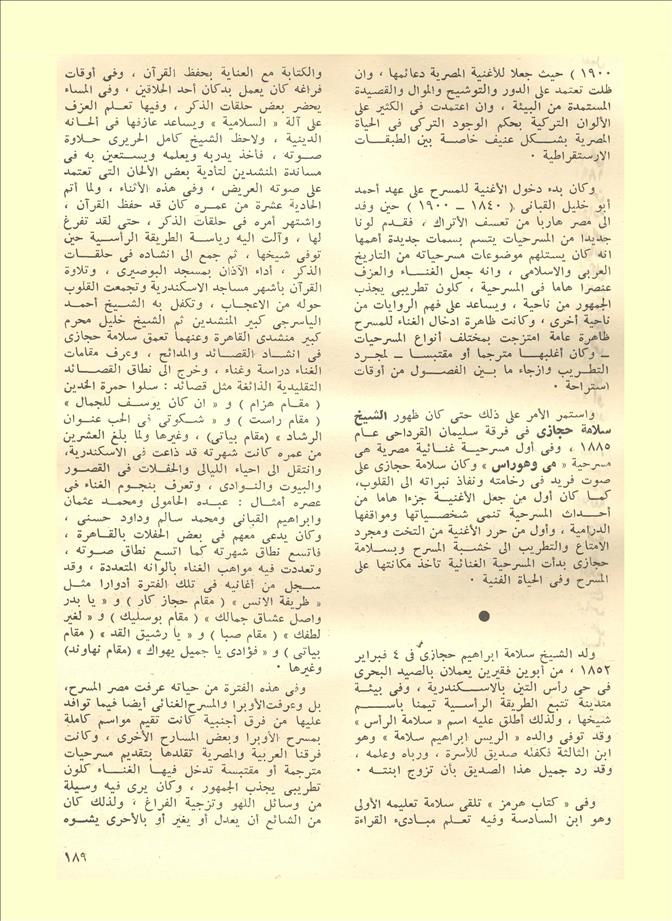 ١٩٠٠ ) حيث جعلا للأغنية المصرية دعائمها ، وان
ظلت تعتمد على الدور والتوشيح والموال والقصيدة
المستمدة من البيئة ، وان اعتمدت فى الكثير على
الألوان التركية بحكم الوجود التركى فى الحياة
المصرية بشكل عنيف خاصة بين الطبقات
الارستقراطية ٠
وكان بدء دخول الأغنية للمسرح على عهد أحمد
أبو خليل القبانى ( ١٨٤٠ ــ ١٩٠٠ ) حين وفد
الى مصر هاربا من تعسف الأتراك ، فقدم لونا
جديدا من المسرحيات يتسم بسمات جديدة أهمها
انه كان يستلهم موضوعات مسرحياته من التاريخ
العربى والاسلامى ، وانه جعل الغناء والعزف
عنصرا هاما فى المسرحية ، كلون تطريبى يجذب
الجمهور من ناحية ، ويساعد على فهم الروايات من
ناحية أخرى ، وكانت ظاهرة ادخال الغناء للمسرح
ظاهرة عامة امتزجت بمختلف أنواع المسرحيات
ــ وكان أغلبها مترجما أو مقتبسا ــ لمجرد
التطريب وازجاء ما بين الفصول من أوقات
استراحة ٠
واستمر الأمر على ذلك حتى كان ظهور الشيخ
سلامة حجازى فى فرقة سليمان القرداحى عام
١٨٨٥ ، وفى أول مسرحية غنائية مصرية هى
مسرحية « مى وهوراس » وكان سلامة حجازى على
صوت فريد فى رخامته ونفاذ نبراته الى القلوب،
كما كان أول من جعل الأغنية جزءا هاما من
أحداث المسرحية تنمى شخصياتها ومواقفها
الدرامية ، وأول من حرر الأغنية من التخت ومجرد
الامتاع والتطريب الى خشبة المسرح وبسلامة
حجازى بدأت المسرحية الغنائية تأخذ مكانتها على
المسرح وفى الحياة الفنية ٠
ولد الشيخ سلامة ابراهيم حجازى فى ٤ فبراير
١٨٥٢ ، من أبوين فقيرين يعملان بالصيد البحرى
فى حى رأس التين بالاسكندرية ، وفى بيئة
متدينة تتبع الطريقة الرأسية تيمنا باسم
شيخها ، ولذلك أطلق عليه اسم « سلامة الرأس »
وقد توفى والده « الريس ابراهيم سلامة » وهو
ابن الثالثة فكفله صديق للأسرة ، ورباه وعلمه ،
وقد رد جميل هذا الصديق بأن تزوج ابنته ٠
وفى « كتاب هرمز » تلقى سلامة تعليمه الأولى
وهو ابن السادسة وفيه تعلم مبادىء القراءة
والكتابة مع العناية بحفظ القرآن ، وفى أوقات
فراغه كان يعمل بدكان أحد الحلاقين ، وفى المساء
يحضر بعض حلقات الذكر ، وفيها تعلم العزف
على آلة « السلامية » ويساعد عازفها فى ألحانه
الدينية ، ولاحظ الشيخ كامل الحريرى حلاوة
صوته ، فأخذ يدربه ويعلمه ويستعين به فى
مساندة المنشدين لتأدية بعض الألحان التى تعتمد
على صوته العريض ، وفى هذه الأثناء ، ولما أتم
الحادية عشرة من عمره كان قد حفظ القرآن ،
واشتهر أمره فى حلقات الذكر ، حتى لقد تفرغ
لها ، وآلت اليه رياسة الطريقة الرأسية حين
توفى شيخها ، ثم جمع الى انشاده فى حلقات
الذكر ، أداء الآذان بمسجد البوصيرى ، وتلاوة
القرآن بأشهر مساجد الاسكندرية وتجمعت القلوب
حوله من الاعجاب ، وتكفل به الشيخ أحمد
الياسرجى كبير المنشدين ثم الشيخ خليل محرم
كبير منشدى القاهرة وعنهما تعمق سلامة حجازى
فى انشاد القصائد والمدائح ، وعرف مقامات
الغناء دراسة وغناء ، وخرج الى نطاق القصائد
التقليدية الذائعة مثل قصائد : سلوا حمرة الخدين
( مقام هزام ) و « ان كان يوسف للجمال »
( مقام راست ) و « شكوتى فى الحب عنوان
الرشاد » (مقام بياتى) ، وغيرها ولما بلغ العشرين
من عمره كانت شهرته قد ذاعت فى الاسكندرية،
وانتقل الى احياء الليالى والحفلات فى القصور
والبيوت والنوادى ، وتعرف بنجوم الغناء فى
عصره أمثال : عبده الحامولى ومحمد عثمان
وابراهيم القبانى ومحمد سالم وداود حسنى ،
وكان يدعى معهم فى بعض الحفلات بالقاهرة ،
فاتسع نطاق شهرته كما اتسع نطاق صوته ،
وتعددت فيه مواهب الغناء بألوانه المتعددة ، وقد
سجل من أغانيه فى تلك الفترة أدوارا مثل
« ظريفة الانس » ( مقام حجاز كار ) و « يا بدر
واصل عشاق جمالك » ( مقام بوسليك ) و « لغير
لطفك » ( مقام صبا ) و « يا رشيق القد » ( مقام
بياتى ) و « فؤادى يا جميل يهواك » (مقام نهاوند)
وغيرها ٠
وفى هذه الفترة من حياته عرفت مصر المسرح،
بل وعرفت الأوبرا والمسرح الغنائى أيضا فيما توافد
عليها من فرق أجنبية كانت تقيم مواسم كاملة
بمسرح الأوبرا وبعض المسارح الأخرى ، وكانت
فرقنا العربية والمصرية تقلدها بتقديم مسرحيات
مترجمة أو مقتبسة تدخل فيها الغناء كلون
تطريبى يجذب الجمهور ، وكان يرى فيه وسيلة
من وسائل اللهو وتزجية الفراغ ، ولذلك كان
من الشائع أن يعدل أو يغير أو بالأحرى يشوه
١٨٩